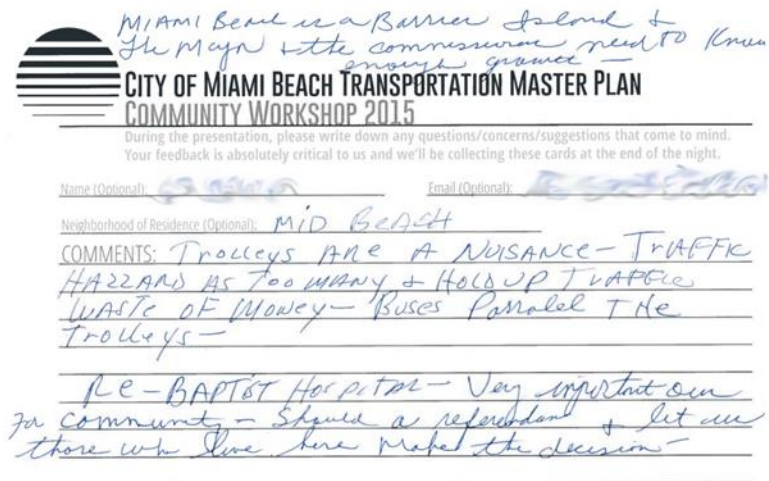 MIAMI Beach is a Barrier Island &
The Mayor & the commissioners need to Know
enough growth —
CITY OF MIAMI BEACH TRANSPORTATION MASTER PLAN
COMMUNITY WORKSHOP 2015
During the presentation, please write down any questions/concerns/suggestions that come to mind.
Your feedback is absolutely critical to us and we'll be collecting these cards at the end of the night.
Name (Optional): Email (Optional):
Neighborhood of Residence (Optional): MID BEACH
COMMENTS: Trolleys ARe A NUISANCE — TRAFFIC
HAZZARD AS TOO MANY & HOLD UP TRAFFIC
WASTE OF Money — Buses Parralel THe
Trolleys —
Re — BAPTIST Hospital — Very important
For community — Should a referendum & let
those who live here make the decision —